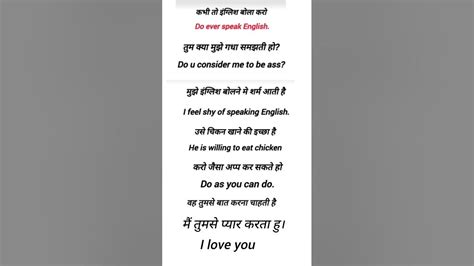 कभी तो इंग्लिश बोला करो
Do ever speak English.
तुम क्या मुझे गधा समझती हो?
Do u consider me to be ass?
मुझे इंग्लिश बोलने मे शर्म आती है
I feel shy of speaking English.
उसे चिकन खाने की इच्छा है
He is willing to eat chicken
करो जैसा अप्प कर सकते हो
Do as you can do.
वह तुमसे बात करना चाहती है
मैं तुमसे प्यार करता हु।
I love you